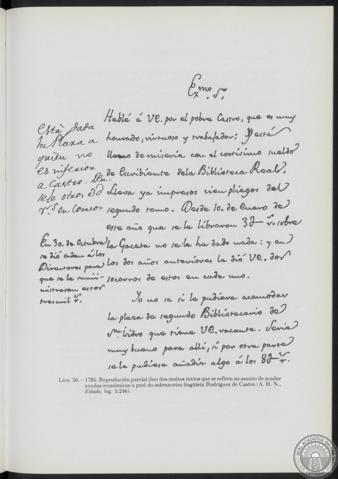 Exmo. Sr.
Hablé á VE. por el pobre Castro, que es muy
honrado, virtuoso y trabajador: Y está
lleno de miseria con el cortísimo sueldo
de Escribiente de la Biblioteca Real.
Lleva ya impresos cien pliegos del
segundo tomo. Desde 10. de Enero de
este año que se le libraron 3@ rs. sobre
la Gaceta no se le ha dado nada: y en
los dos años anteriores le dió VE. dos
socorros de estos en cada uno.
Yo no se si le pudiera acomodar
la plaza de segundo Bibliotecario de
Sn. Isidro que tiene VE. vacante. Seria
muy bueno para alli, ú por otra parte
se le pudiese añadir algo á los 8@ rs.
Está dada
la Plaza a
quien no
es inferior
a Castro.
otros 3@
rs. en
En 30. de Octubre
se dió orden á los
Directores para
que se le suminis-
trasen estos
tres mil rs.
Lám. 50. — 1785. Reproducción parcial dun dos moitos textos que se refiren ao asunto de acadar
axudas económicas a prol do sobranceiro lingüista Rodríguez de Castro (A. H. N.,
Estado, leg. 3.246).